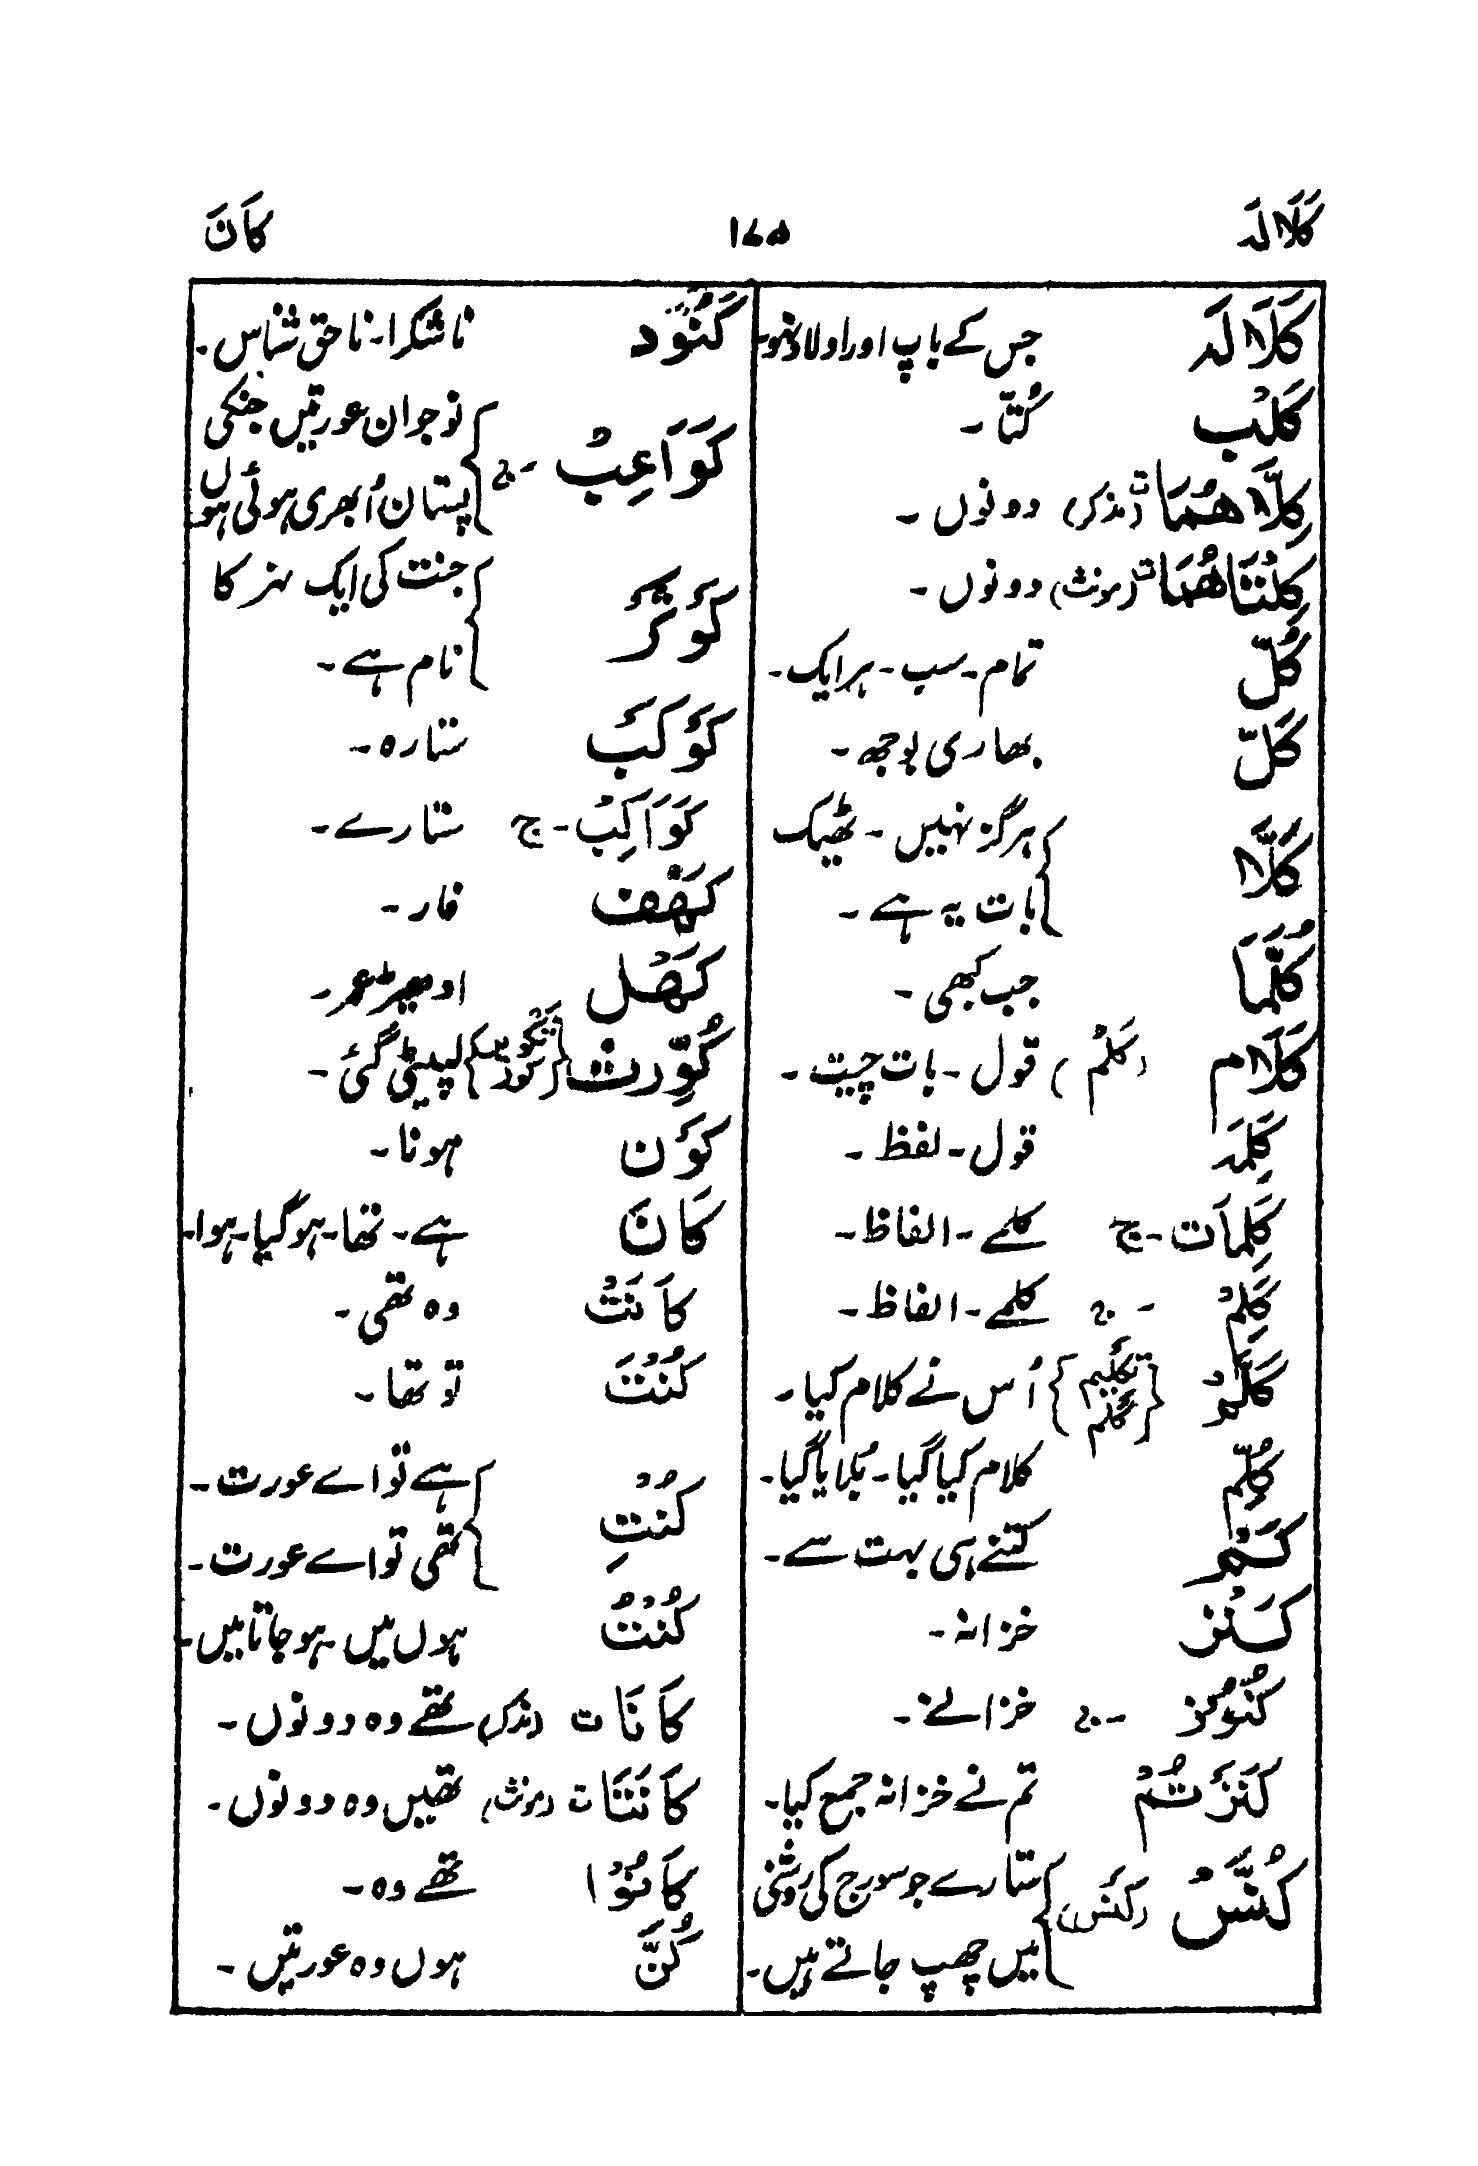 كَلَالَه ۱۷۵ كَانَ
كَلَالَه جس کے باپ اور اولاد نہو۔
كَلْب کُتّا۔
كِلَاهُمَا ث (مذکر) دونوں۔
كِلْتَاهُمَا ث (مونث) دونوں۔
كُلّ تمام۔ سب۔ ہر ایک۔
كَلّ بھاری بوجھ۔
كَلَّا ہرگز نہیں۔ ٹھیک
بات یہ ہے۔
كُلَّمَا جب کبھی۔
كَلَام (كَلْمٌ) قول۔ بات چیت۔
كَلِمَه قول۔ لفظ۔
كَلِمَات۔ ج کلمے۔ الفاظ۔
كَلِمْ۔ ج کلمے۔ الفاظ۔
كَلَّمَ {تكليم كَلْم} اُس نے کلام کیا۔
كُلِّمَ کلام کیا گیا۔ بُلایا گیا۔
كَمْ کتنے ہی بہت سے۔
كَنْز خزانہ۔
كُنُوْز۔ ج خزانے۔
كَنَزْتُمْ تم نے خزانہ جمع کیا۔
كُنَّسْ (كَنْس) ستارے جو سورج کی روشنی
میں چھپ جاتے ہیں۔
كَنُوْد ناشکرا۔ ناحق شناس۔
كَوَاعِبْ۔ ج نوجوان عورتیں جنکی
پستان اُبھری ہوئی ہوں
كَوْثَر جنت کی ایک نہر کا
نام ہے۔
كَوْكَبْ ستارہ۔
كَوَاكِبْ۔ ج ستارے۔
كَهْف غار۔
كَهْل ادھیڑ عمر۔
كُوِّرَتْ {تكوير كور} لپیٹی گئی۔
كَوْن ہونا۔
كَانَ ہے۔ تھا۔ ہوگیا۔ ہوا۔
كَانَتْ وہ تھی۔
كُنْتَ تو تھا۔
كُنْتِ ہے تو اے عورت۔
تھی تو اے عورت۔
كُنْتُ ہوں میں۔ ہو جاتا ہیں۔
كَانَا ث (مذکر) تھے وہ دونوں۔
كَانَتَا ث (مونث) تھیں وہ دونوں۔
كَانُوْا تھے وہ۔
كُنَّ ہوں وہ عورتیں۔